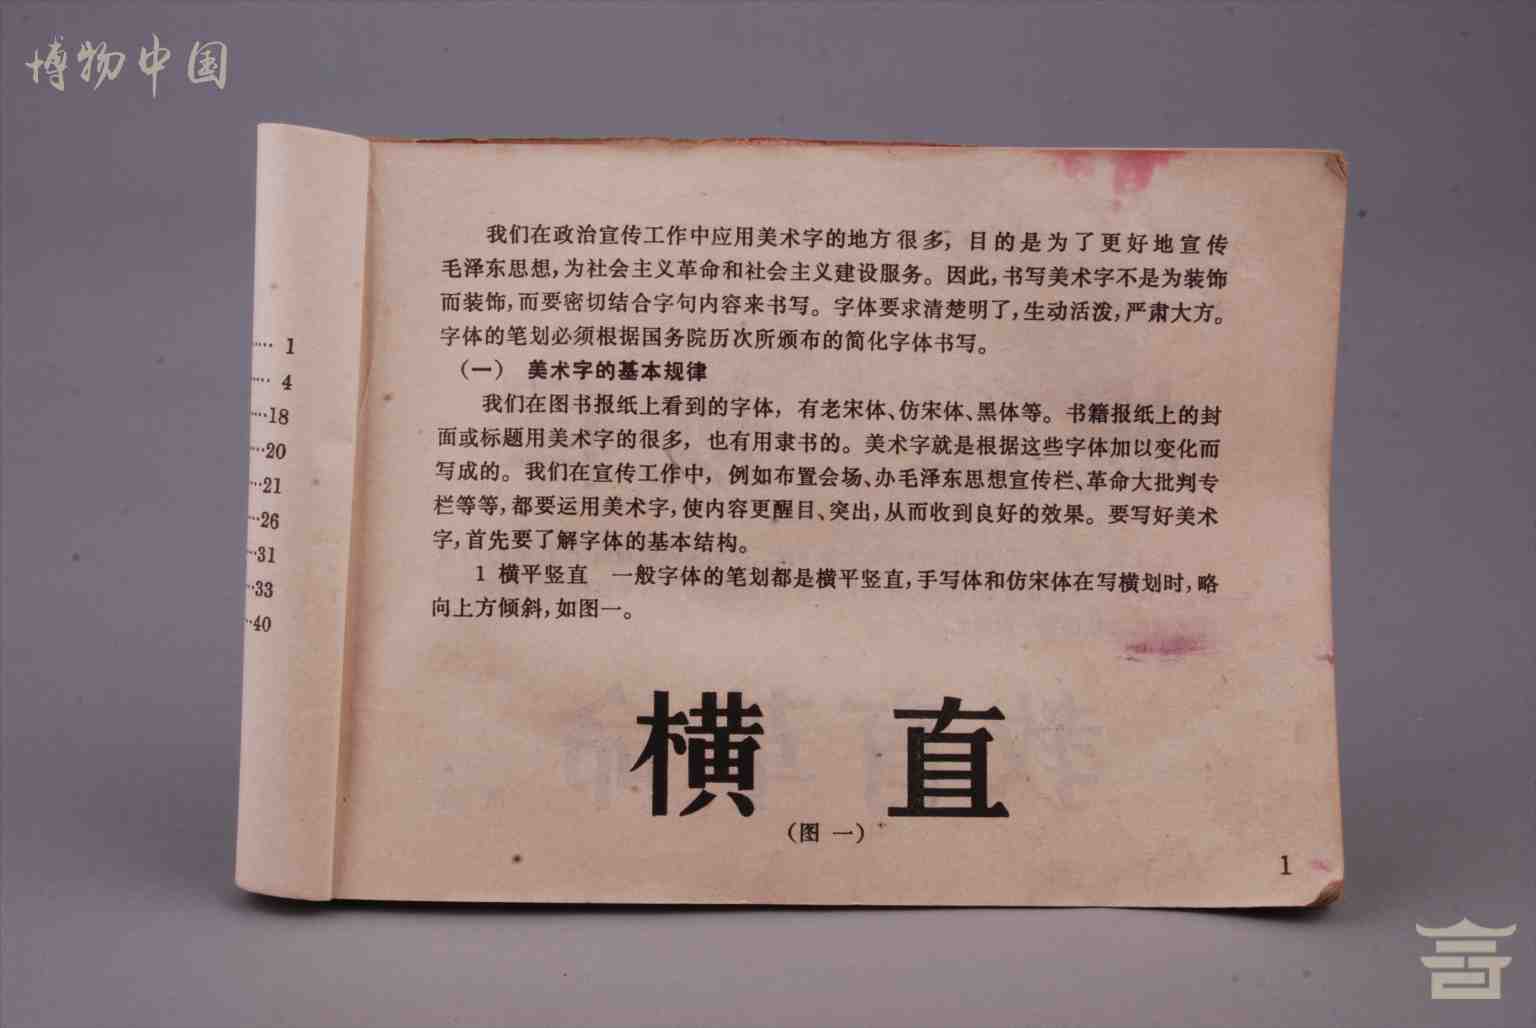 博物中国
····· 1
···· 4
····18
···20
···21
···26
··31
··33
··40
我们在政治宣传工作中应用美术字的地方很多，目的是为了更好地宣传
毛泽东思想，为社会主义革命和社会主义建设服务。因此，书写美术字不是为装饰
而装饰，而要密切结合字句内容来书写。字体要求清楚明了，生动活泼，严肃大方。
字体的笔划必须根据国务院历次所颁布的简化字体书写。
（一） 美术字的基本规律
我们在图书报纸上看到的字体，有老宋体、仿宋体、黑体等。书籍报纸上的封
面或标题用美术字的很多，也有用隶书的。美术字就是根据这些字体加以变化而
写成的。我们在宣传工作中，例如布置会场、办毛泽东思想宣传栏、革命大批判专
栏等等，都要运用美术字，使内容更醒目、突出，从而收到良好的效果。要写好美术
字，首先要了解字体的基本结构。
1 横平竖直 一般字体的笔划都是横平竖直，手写体和仿宋体在写横划时，略
向上方倾斜，如图一。
横 直
（图 一）
1